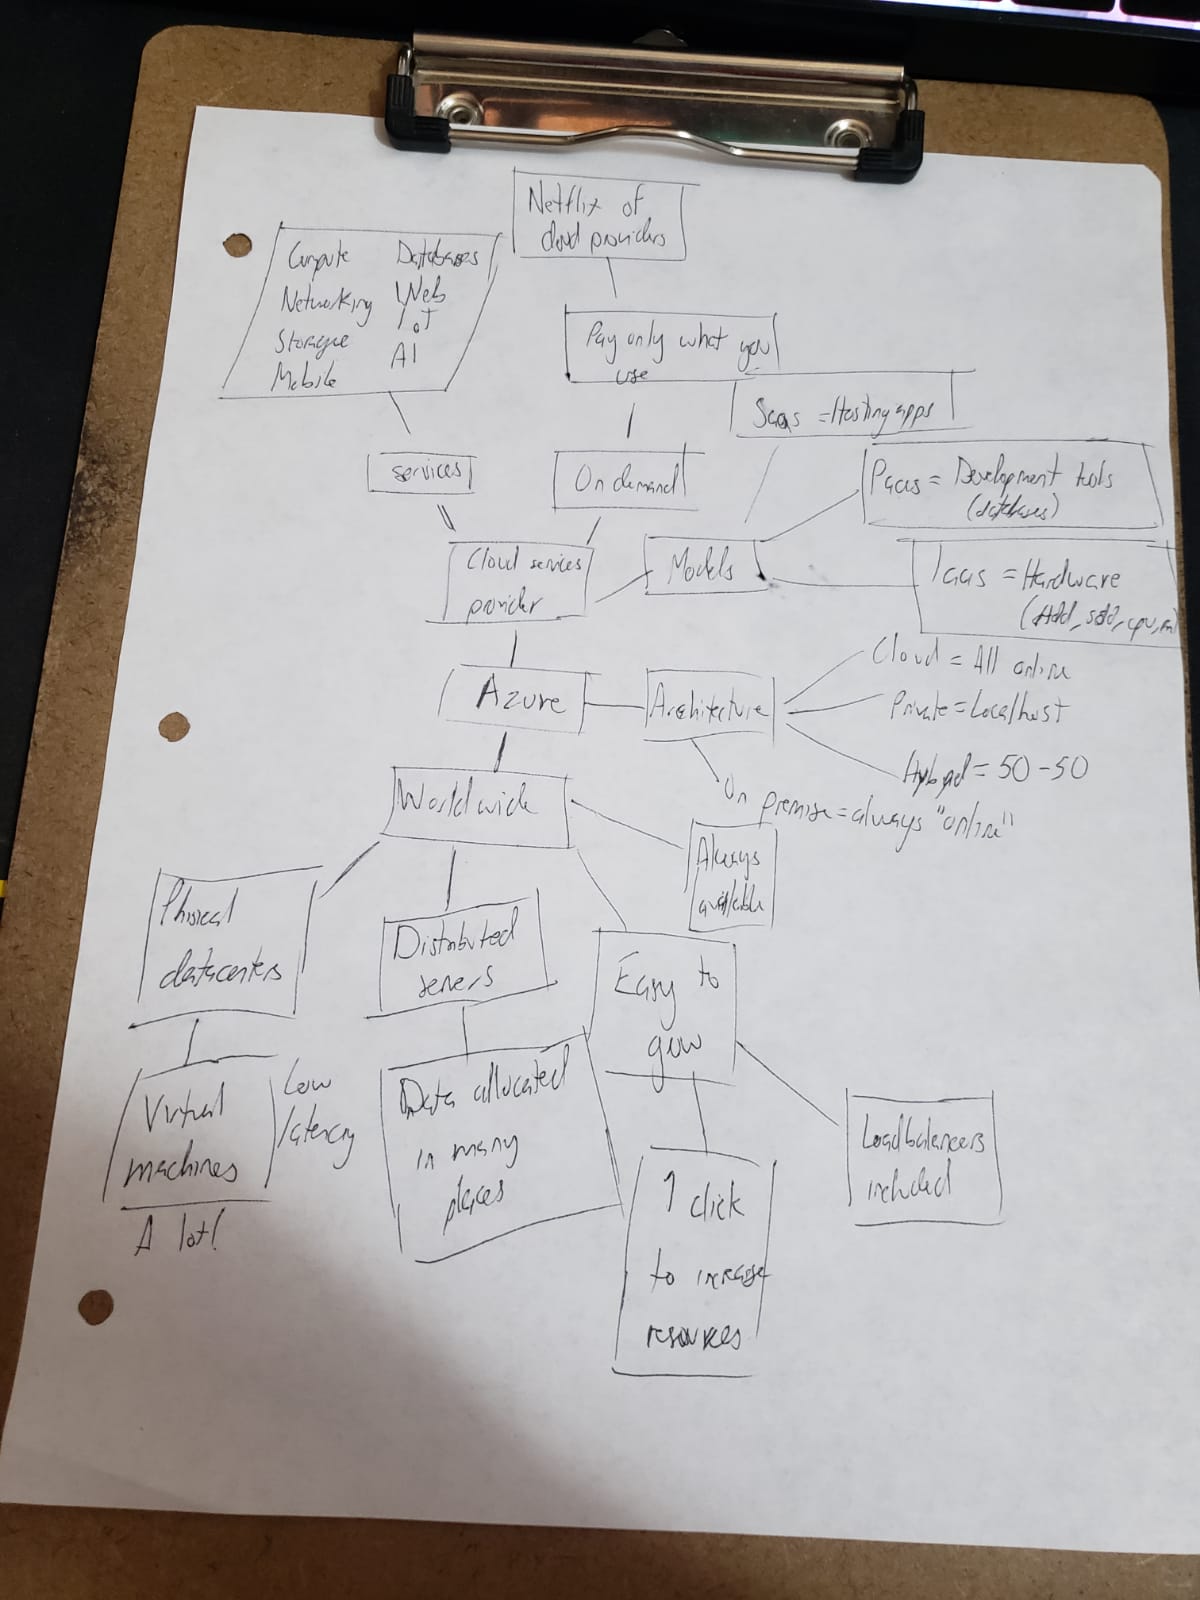 Netflix of
cloud providers
Compute Databases
Networking Web
IoT
Storage
AI
Mobile
Pay only what you
use
Saas = Hosting apps
services
On demand
Paas = Development tools
(databases)
Cloud services
provider
Models
Iaas = Hardware
(Hdd, sdd, cpu,
Azure
Architecture
Cloud = All online
Private = Localhost
Hybrid = 50-50
On premise = always "online"
Worldwide
Always
available
Phisical
datacenters
Distributed
servers
Easy to
grow
Virtual
machines
A lot!
Low
latency
Data allocated
in many
places
1 click
to increase
resources
Loadbalancers
included